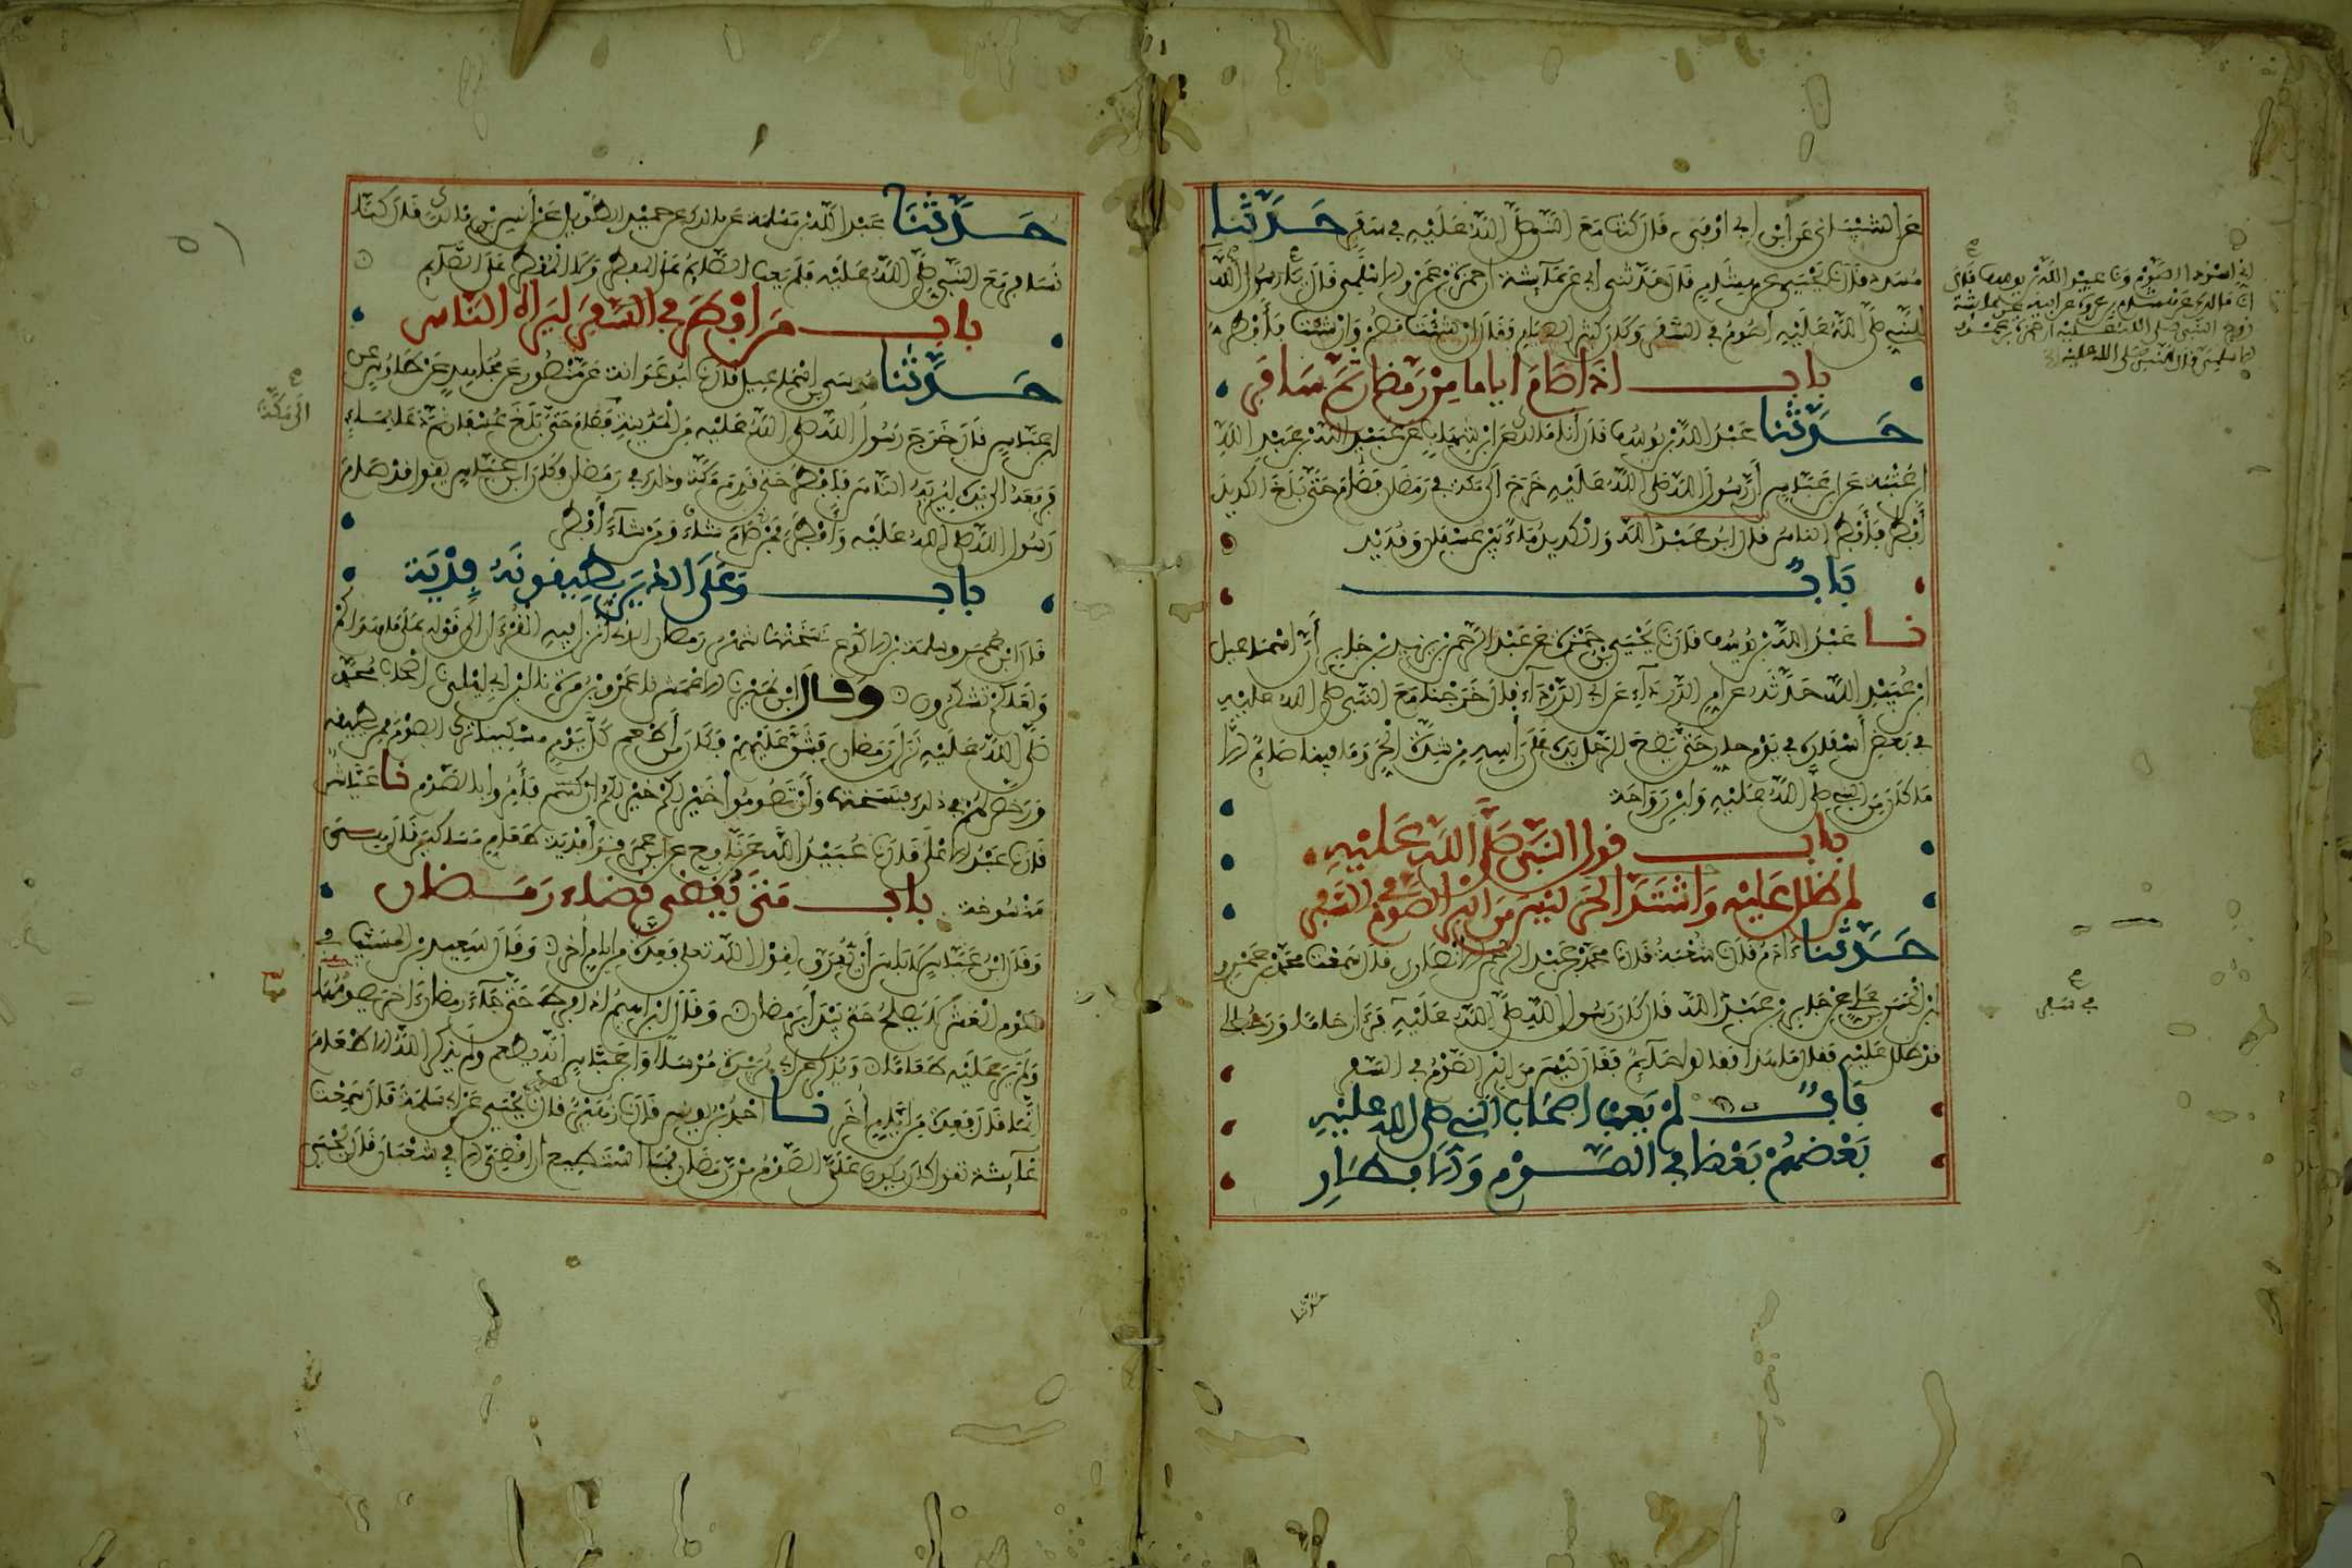 عن الشيباني عن ابن ابي اوفى قال كنت مع النبي صلى الله عليه في سفر حدثنا
مسدد قال نا يحيى عن هشام قال حدثني ابي عن عائشة ان حمزة بن عمرو الاسلمي قال يا رسول الله
للنبي صلى الله عليه أصوم في السفر وكان كثير الصيام فقال ان شئت فصم وان شئت فأفطر
باب اذا صام اياما من رمضان ثم سافر
حدثنا عبد الله بن يوسف قال انا مالك عن ابن شهاب عن عبيد الله بن عبد الله
ابن عتبة عن ابن عباس أن رسول الله صلى الله عليه خرج الى مكة في رمضان فصام حتى بلغ الكديد
أفطر فأفطر الناس قال ابو عبد الله والكديد ماء بين عسفان وقديد
باب
نا عبد الله بن يوسف قال نا يحيى بن حمزة عن عبد الرحمن بن يزيد بن جابر أن اسمعيل
ابن عبيد الله حدثه عن ام الدرداء عن ابي الدرداء قال خرجنا مع النبي صلى الله عليه
في بعض أسفاره في يوم حار حتى يضع الرجل يده على رأسه من شدة الحر وما فينا صائم الا
ما كان من النبي صلى الله عليه وابن رواحة
باب قول النبي صلى الله عليه
لمن ظلل عليه واشتد الحر ليس من البر الصوم في السفر
حدثنا ءادم قال نا شعبة قال نا محمد بن عبد الرحمن الانصاري قال سمعت محمد بن عمرو
ابن الحسن بن علي عن جابر بن عبد الله قال كان رسول الله صلى الله عليه في سفر فرأى زحاما ورجلا
قد ظلل عليه فقال ما هذا فقالوا صائم فقال ليس من البر الصوم في السفر
باب لم يعب اصحاب النبي صلى الله عليه
بعضهم بعضا في الصوم والافطار
حدثنا
اني اسرد الصوم ونا عبد الله بن يوسف قال
انا مالك عن هشام بن عروة عن ابيه عن عائشة
زوج النبي صلى الله عليه ان حمزة بن عمرو
الاسلمي قال للنبي صلى الله عليه
في سفر
حدثنا عبد الله بن مسلمة عن مالك عن حميد الطويل عن أنس بن مالك قال كنا
نسافر مع النبي صلى الله عليه فلم يعب الصائم على المفطر ولا المفطر على الصائم
باب من افطر في السفر ليراه الناس
حدثنا موسى بن اسمعيل قال نا ابو عوانة عن منصور عن مجاهد عن طاوس عن
ابن عباس قال خرج رسول الله صلى الله عليه من المدينة فصام حتى بلغ عسفان ثم دعا بماء
فرفعه الى يديه ليريه الناس فأفطر حتى قدم مكة وذلك في رمضان وكان ابن عباس يقول قد صام
رسول الله صلى الله عليه وأفطر فمن شاء صام ومن شاء أفطر
باب وعلى الذين يطيقونه فدية
قال ابن عمر وسلمة بن الاكوع نسختها شهر رمضان الذي انزل فيه القرءان الى قوله على ما هداكم
ولعلكم تشكرون وقال ابن نمير نا الاعمش نا عمرو بن مرة نا ابن ابي ليلى نا اصحاب محمد
صلى الله عليه نزل رمضان فشق عليهم فكان من أطعم كل يوم مسكينا ترك الصوم ممن يطيقه
ورخص لهم في ذلك فنسختها وأن تصوموا خير لكم فأمروا بالصوم نا عياش
قال نا عبد الاعلى قال نا عبيد الله عن نافع عن ابن عمر قرأ فدية طعام مساكين قال هي
منسوخة باب متى يقضى قضاء رمضان
وقال ابن عباس لا باس أن يفرق لقول الله تعالى فعدة من ايام أخر وقال سعيد بن المسيب في
صوم العشر لا يصلح حتى يبدأ برمضان وقال ابراهيم اذا فرط حتى جاء رمضان ءاخر يصومهما
ولم ير عليه طعاما ويذكر عن ابي هريرة مرسلا وابن عباس انه يطعم ولم يذكر الله الاطعام
انما قال فعدة من ايام أخر نا احمد بن يونس قال نا زهير قال نا يحيى عن ابي سلمة قال سمعت
عائشة تقول كان يكون علي الصوم من رمضان فما استطيع أن اقضي الا في شعبان قال يحيى
الى مكة